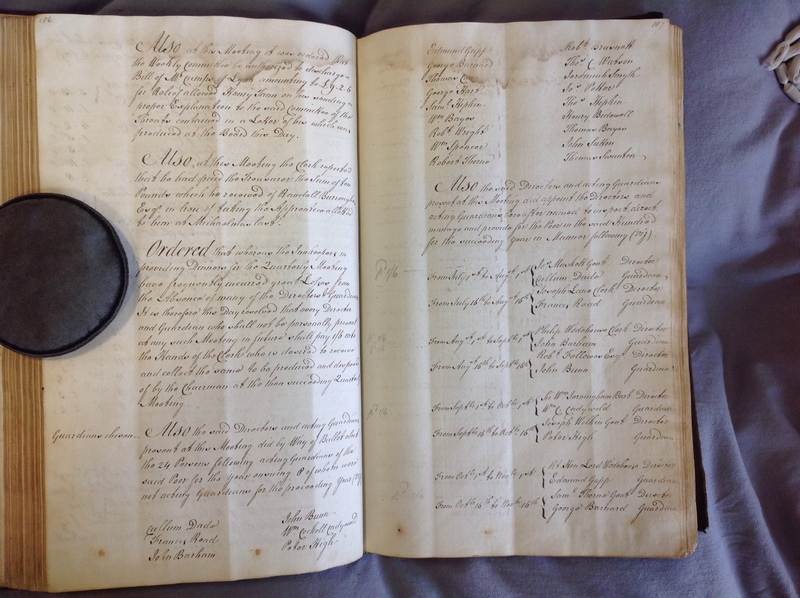 186
Also at this Meeting it was ordered that
the Weekly Committee be authorized to discharge a
Bill of Mr Camps of amounting to £9.2.6
for Relief allowed Henry on his sending a
proper Explanation to the said Committee of the
Threats contained in a Letter of his which was
produced at the Board this Day.
Also, at this Meeting the Clerk reported
that he had paid the Treasurer the Sum of ten
Pounds which he received of Randall Burroughes
Esqr. in lieu of taking the Apprentice allotted
to him at Michaelmas last.
Ordered that whereas the Innkeeper, in
providing Dinners for the Quarterly Meeting
have frequently incurred great Losses from
the Absence of many of the Directors & Guardians
It is therefore this Day resolved that every Director
and Guardian who shall not be personally present
at any such Meeting in future shall pay 1/6 into
the Hands of the Clerk who is desired to receive
and collect the same to be produced and disposed
of by the Chairman at the then succeeding Quarterly
Meeting.
Guardians chosen..
Also the said Directors and acting Guardians
present at this Meeting did by Way of Ballot elect
the 24 Persons following acting Guardians of the
said Poor for the Year ensuing 8 of whom were
not acting Guardians for the preceeding Year
Cullum Dade
Francs Read
John Barham
John Bunn
Wm Cadywold
Peter High
187
Edmund Gapp
George Barnard
Thomas
George Hart
Saml Hipkin
Wm Bayes
Robt Wright
Wm Spencer
Robert Thorne
Robt Brasnett
Thos C Watson
Jeremiah Smyth
Jos Potter
Thos Hipkin
Henry Bidewell
Thomas Bayes
John
Thomas Swanton
Also the said Directors and acting Guardians
present at this Meeting did appoint the Directors and
acting Guardians hereafter named to inspect direct
manage and provide for the Poor in the said Hundred
for the succeeding Year in Manner following (viz)
From July 1st to Augt 1st Jos Maskell Gent Director
Cullum Dade Guardian
From July 16th to Augt 16th Joseph Lane Clerk Director
Francs Read Guardian
From Augt 1st to Septr 1st Philip Wodehouse Clerk Director
John Barham Guardian
From Augt 16th to Septr 16th Robt Fellowes Esqr Director
John Bunn Guardian
From Septr 1st to Octr 1st Sr Wm Jerningham Bart. Director
Wm C Cadywold Guardian
From Septr 16th to Octr 16th Joseph Gent Director
Peter High Guardian
From Octr 1st to Novr 1st Rt Hon Lord Wodehouse Director
Edmund Gapp Guardian
From Octr 16th to Novr 16th Saml Thorne Gent Director
George Barnard Guardian